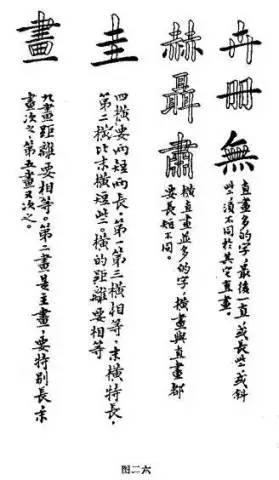 卉冊無
直畫多的字,最後一直,或長些,或斜
些,須不同於其它直畫。
赫聶肅
橫直畫並多的字,橫畫與直畫都
要長短不同。
圭
四橫要向短而長,第一第三橫相等,末橫特長,
第二橫比末橫短些。橫的距離要相等
畫
九畫距離要相等。第二畫是主畫,要特別長,末
畫次之,第五畫又次之。
图二六